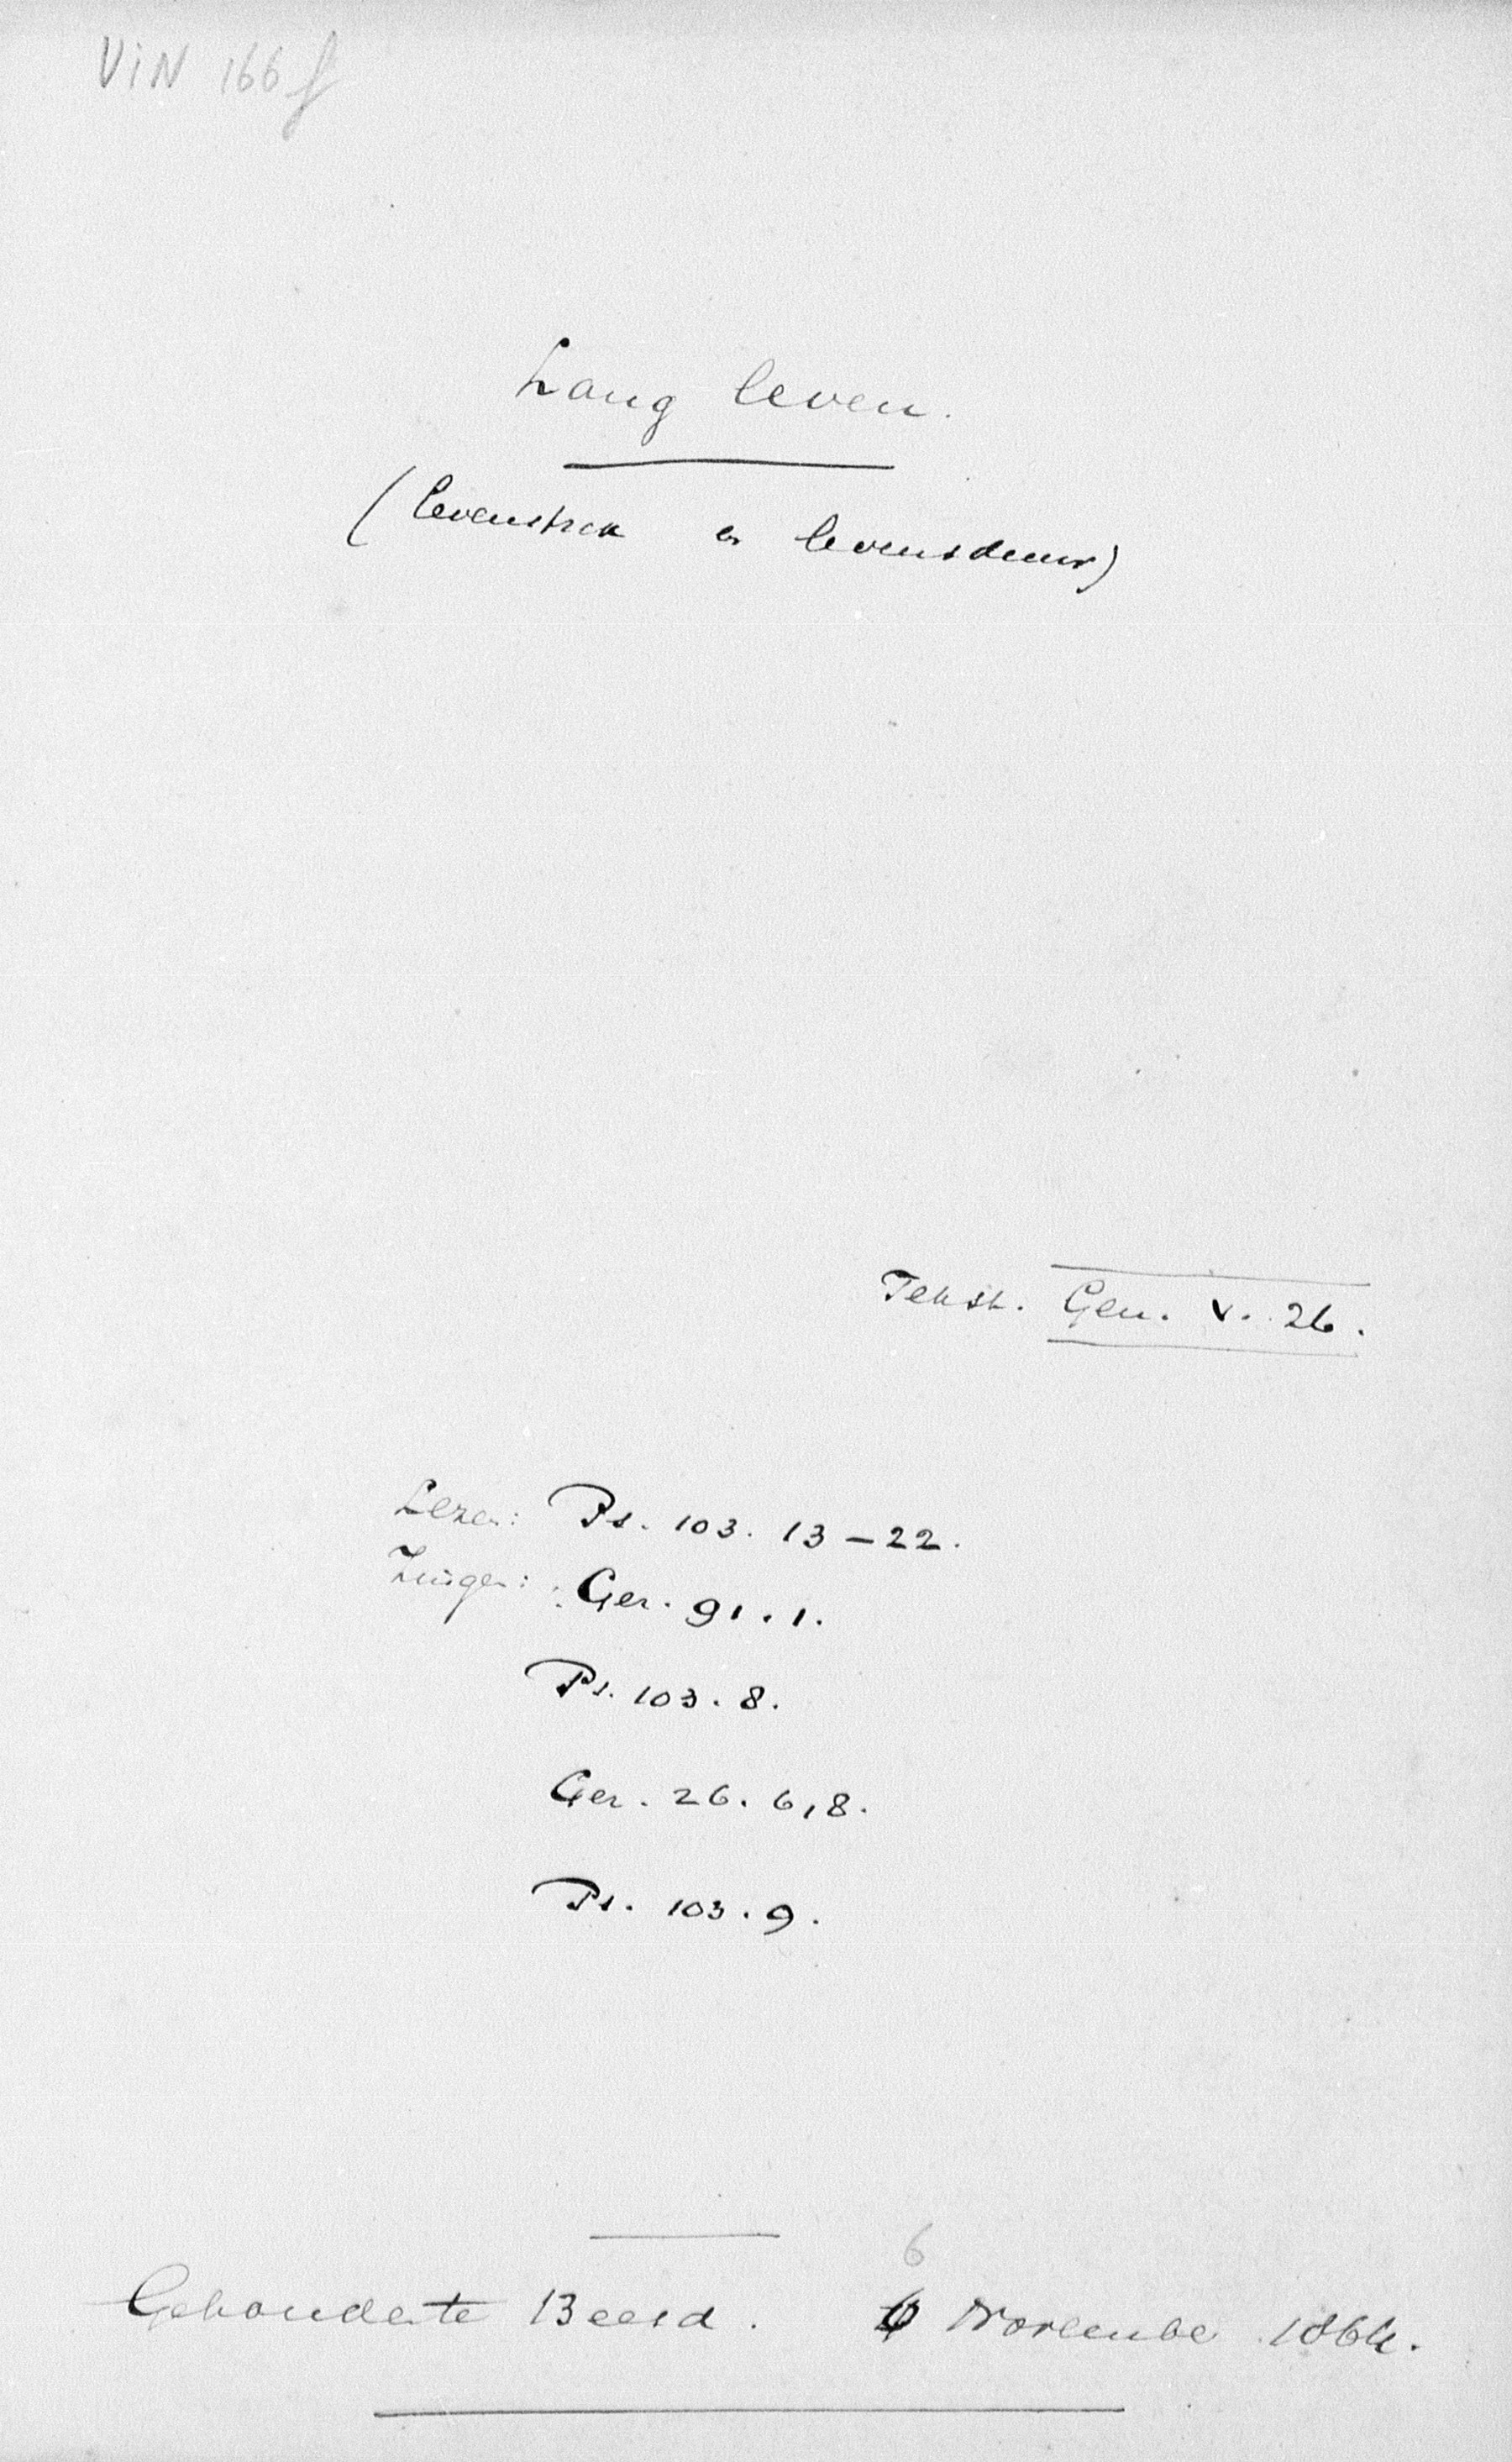 ViN 166 f
Lang leven.
(levenstrek en levensduur)
Tekst. Gen. V. 26.
Lezen: Ps. 103. 13-22.
Zingen: Gez. 91. 1.
Ps. 103. 8.
Gez. 26. 6, 8.
Ps. 103. 9.
6
Gehouden te Beesd. 6 November 1864.